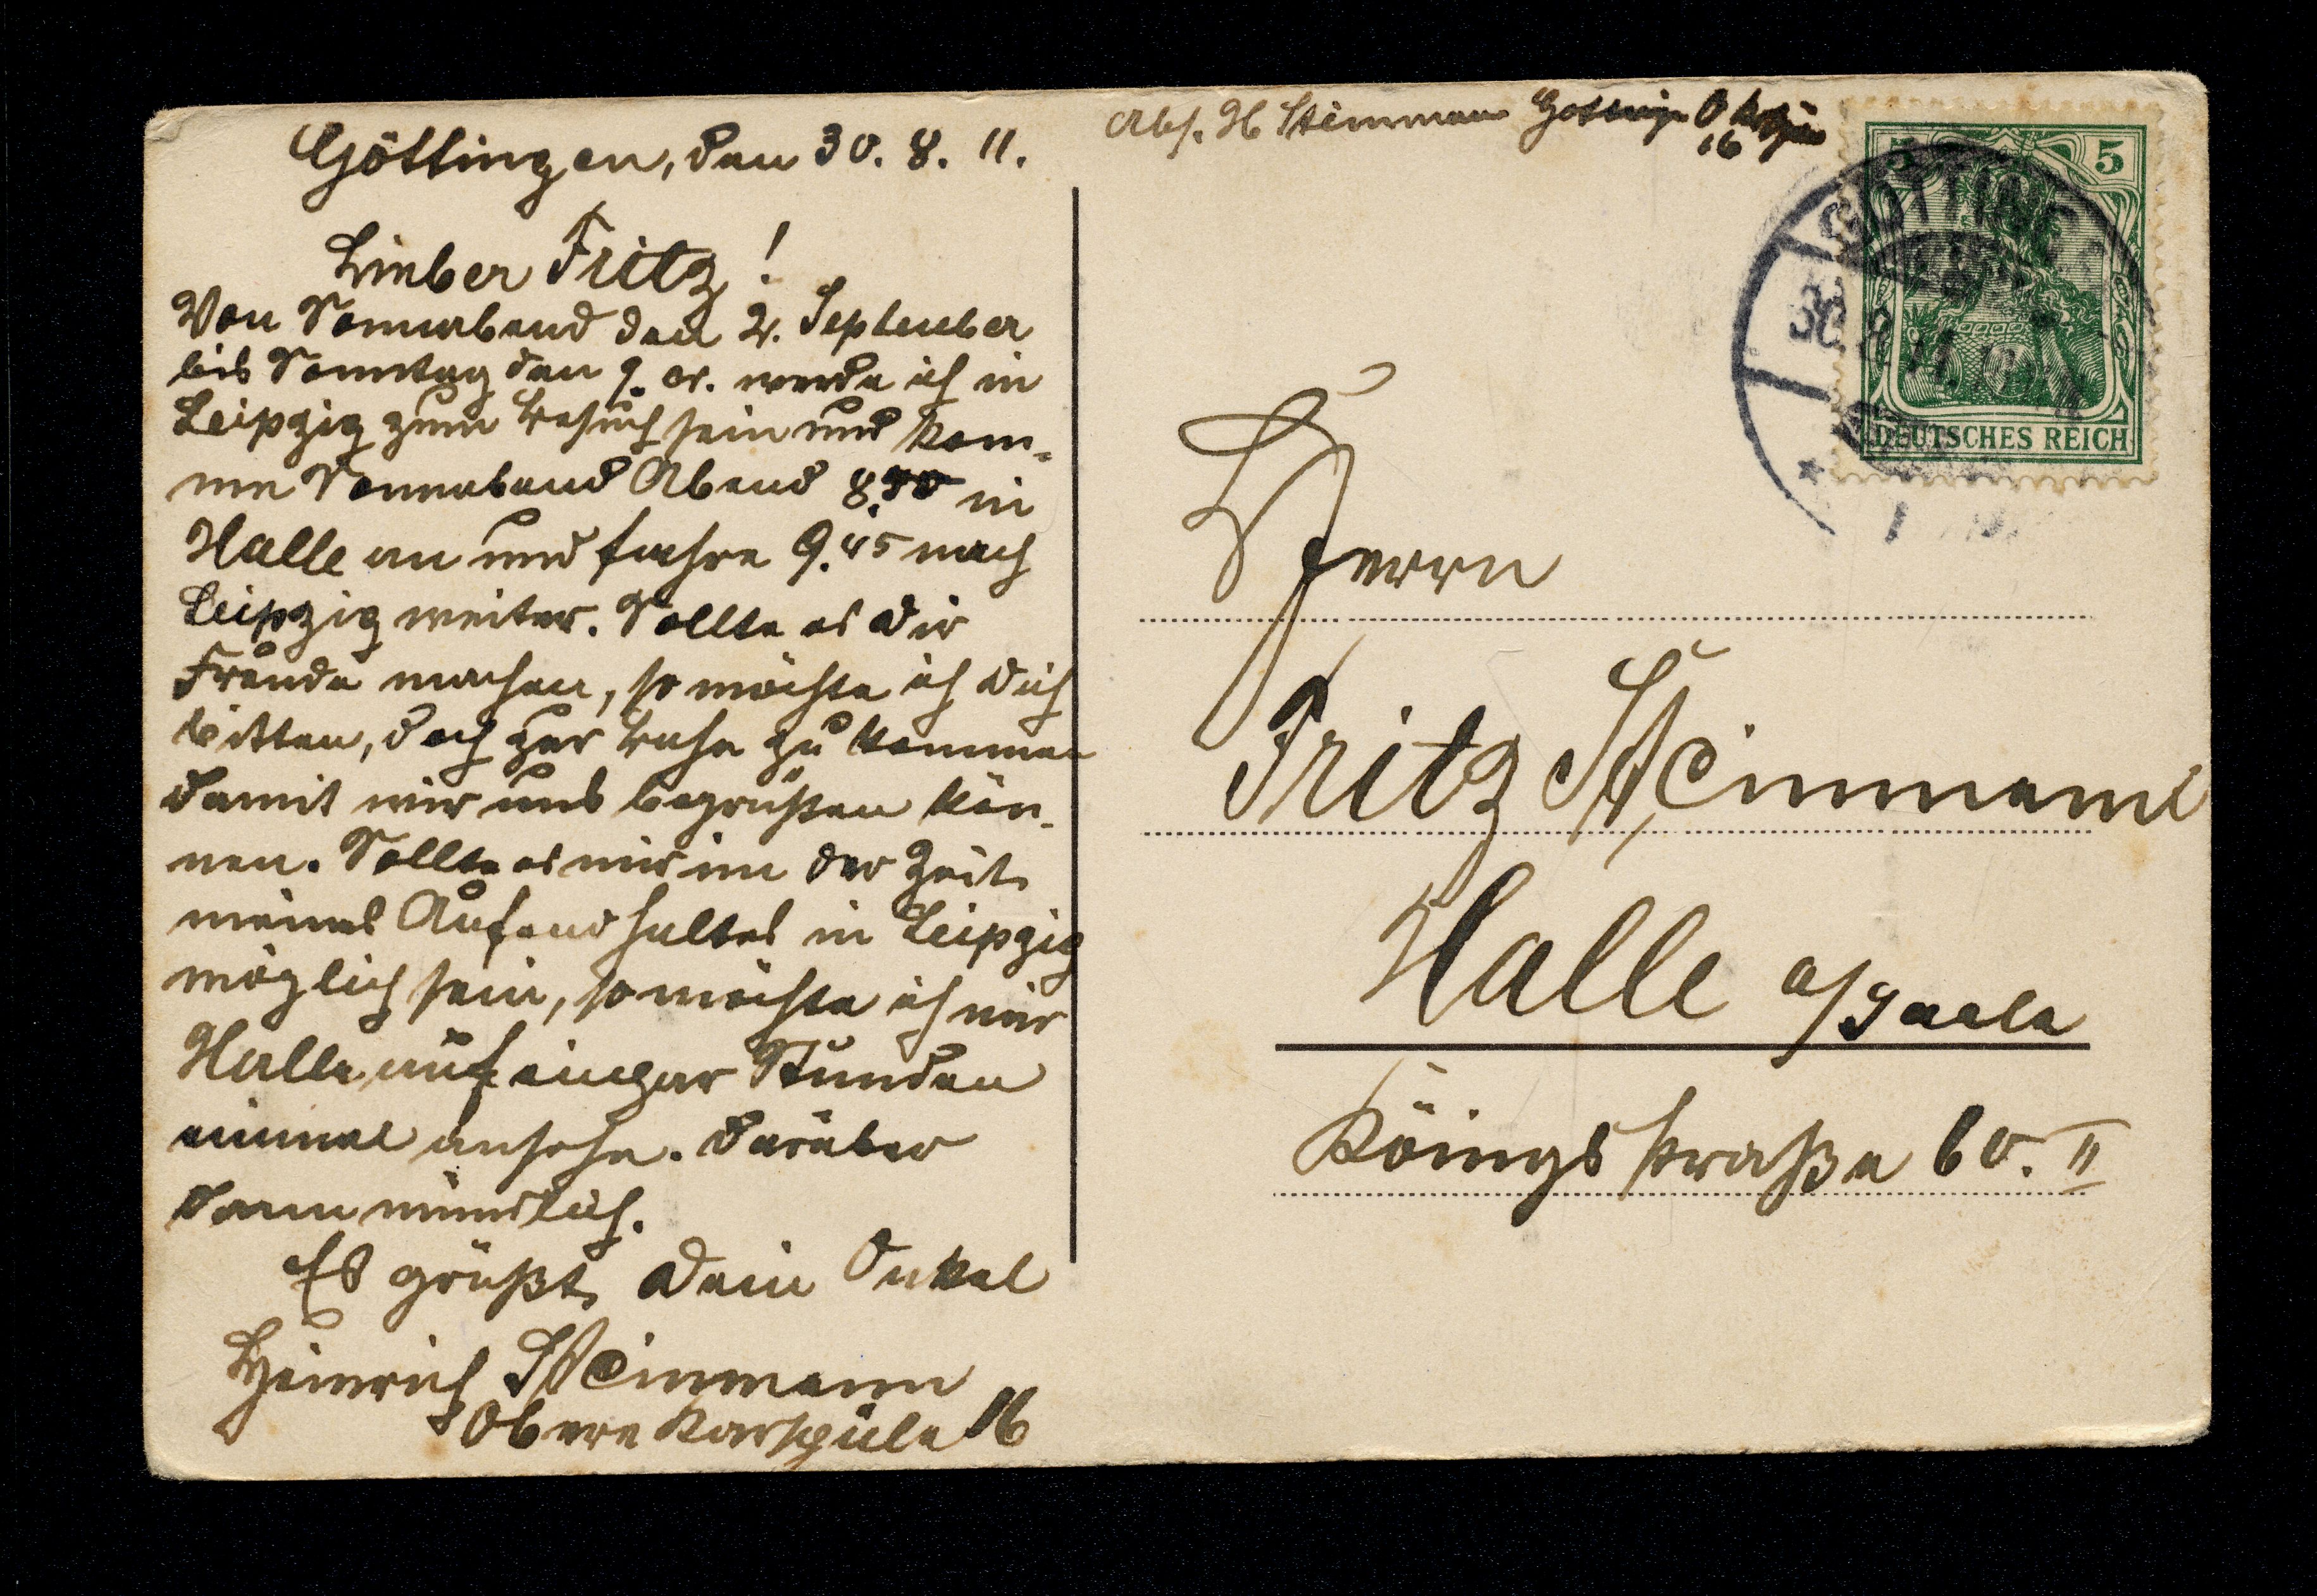 Göttingen, den 30. 8. 11.
Lieber Fritz!
Von Sonnabend den 2. September
bis Sonntag den 9. cr. werde ich in
Leipzig zum Besuch sein und kom-
me Sonnabend Abend 8.50 in
Halle an und fahre 9.45 nach
Leipzig weiter. Sollte es Dir
Freude machen, so möchte ich Dich
bitten, doch zur Bahn zu kommen
damit wir uns begrüßen kön-
nen. Sollte es mir in der Zeit
meines Aufendhaltes in Leipzig
möglich sein, so möchte ich mir
Halle auf einpar Stunden
einmal ansehn. Darüber
dann mündlich.
Es grüßt Dein Onkel
Heinrich Steinmann
Obere Karspüle 16
Abs. H Steinmann Göttingen O Karspüle
16
5 5
DEUTSCHES REICH
GÖTTING
30
Herrn
Fritz Steinmann
Halle a/Saale
Königsstraße 60. II